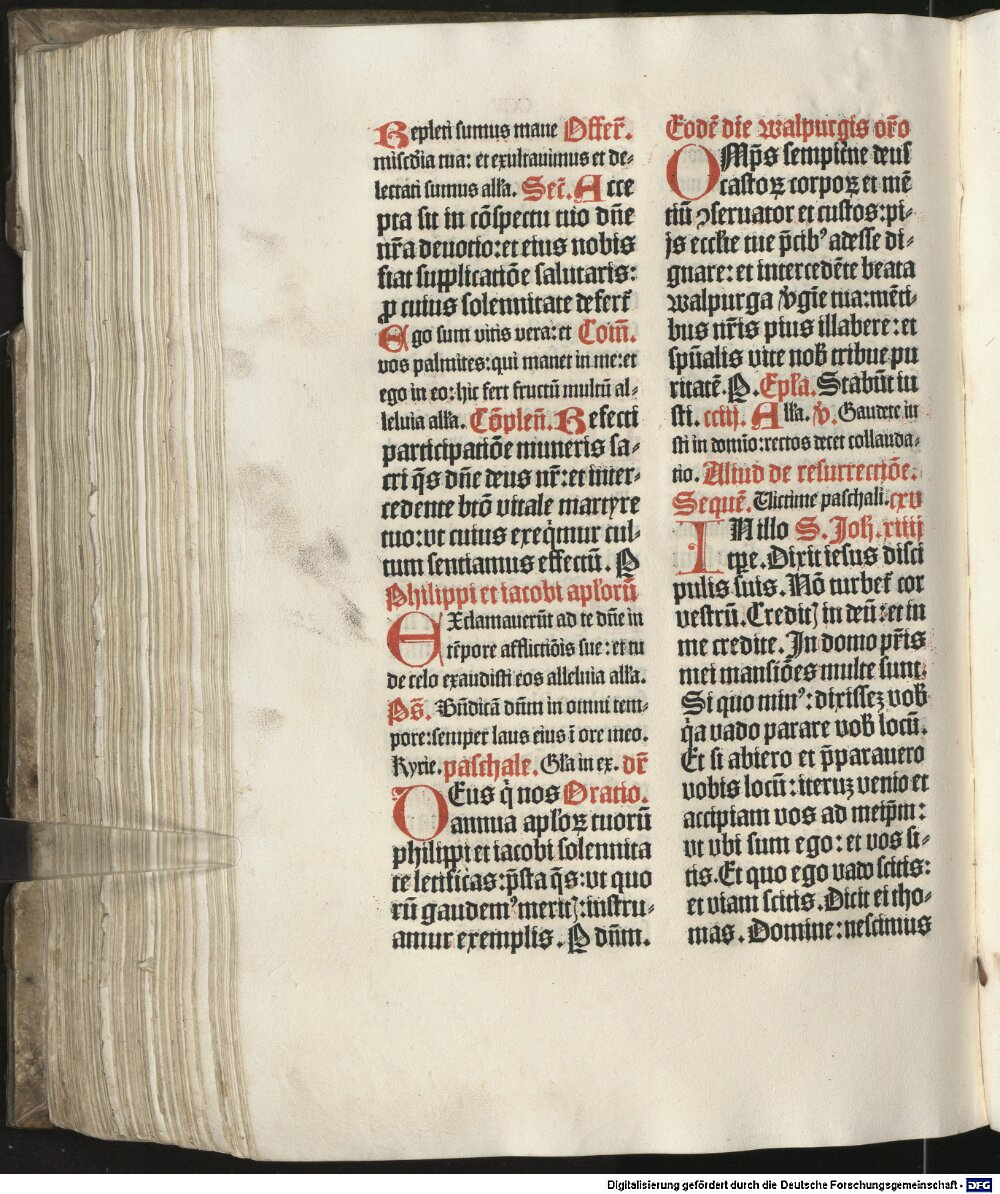 Repleti sumus mane Offer̄.
miscd̄ia tua: et exultauimus et de⸗
lectati sumus alła. Secr̄. Acce
pta sit in cōspectu tuo dn̄e
nr̄a deuotio: et eius nobis
fiat supplicatiōe salutaris:
ꝓ cuius solennitate defert̄
Ego sum vitis vera: et Com̄.
vos palmites: qui manet in me: et
ego in eo: hic fert fructū multū al⸗
leluia alła. Cōplen̄. Refecti
participatiōe muneris sa⸗
cri q̄s dn̄e deus nr̄: et inter⸗
cedente btō vitale martyre
tuo: vt cuius exeq̇mur cul⸗
tum sentiamus effectū. P
Philippi et iacobi apl̓orū
EXclamauerūt ad te dn̄e in
tēpore afflictiōis sue: et tu
de celo exaudisti eos alleluia alła.
Ps̄. Bn̄dicā dn̄m in omni tem⸗
pore: semper laus eius ī ore meo.
Kyrie. paschale. Gła in ex. dr̄
DEus q̇ nos Oratio.
annua apl̓oꝝ tuorū
philippi et iacobi solennita
te letificas: p̄sta q̄s: vt quo
rū gaudemꝰ meritꝭ: instru⸗
amur exemplis. P dn̄m.
Eodē die walpurgis or̄o
OMp̄s sempitne deus
castoꝝ corpoꝝ et mē
tiū ꝯseruator et custos: pi⸗
js eccłie tue p̄cibꝰ adesse di⸗
gnare: et intercedēte beata
walpurga v̓gīe tua: mēti⸗
bus nr̄is pius illabere: et
spūalis vite nob̄ tribue pu
ritatē. P. Epła. Stabūt iu
sti. cciij. Alła. v̓. Gaudete iu
sti in domīo: rectos decet collauda⸗
tio. Aliud de resurrectiōe.
Sequē. Victime paschali. cxv
INillo S. Joh. xiiij
tꝑe. Dixit iesus disci
pulis suis. Nō turbet̄ cor
vestrū. Creditꝭ in deū: et in
me credite. In domo pr̄is
mei mansiōes multe sunt.
Si quo minꝰ: dixissez vob̄
q̇a vado parare vob̄ locū.
Et si abiero et p̄parauero
vobis locū: iteruz venio et
accipiam vos ad meip̄m:
vt vbi sum ego: et vos si⸗
tis. Et quo ego vado scitis:
et viam scitis. Dicit ei tho⸗
mas. Domine: nescimus
Digitalisierung gefördert durch die Deutsche Forschungsgemeinschaft - DFG